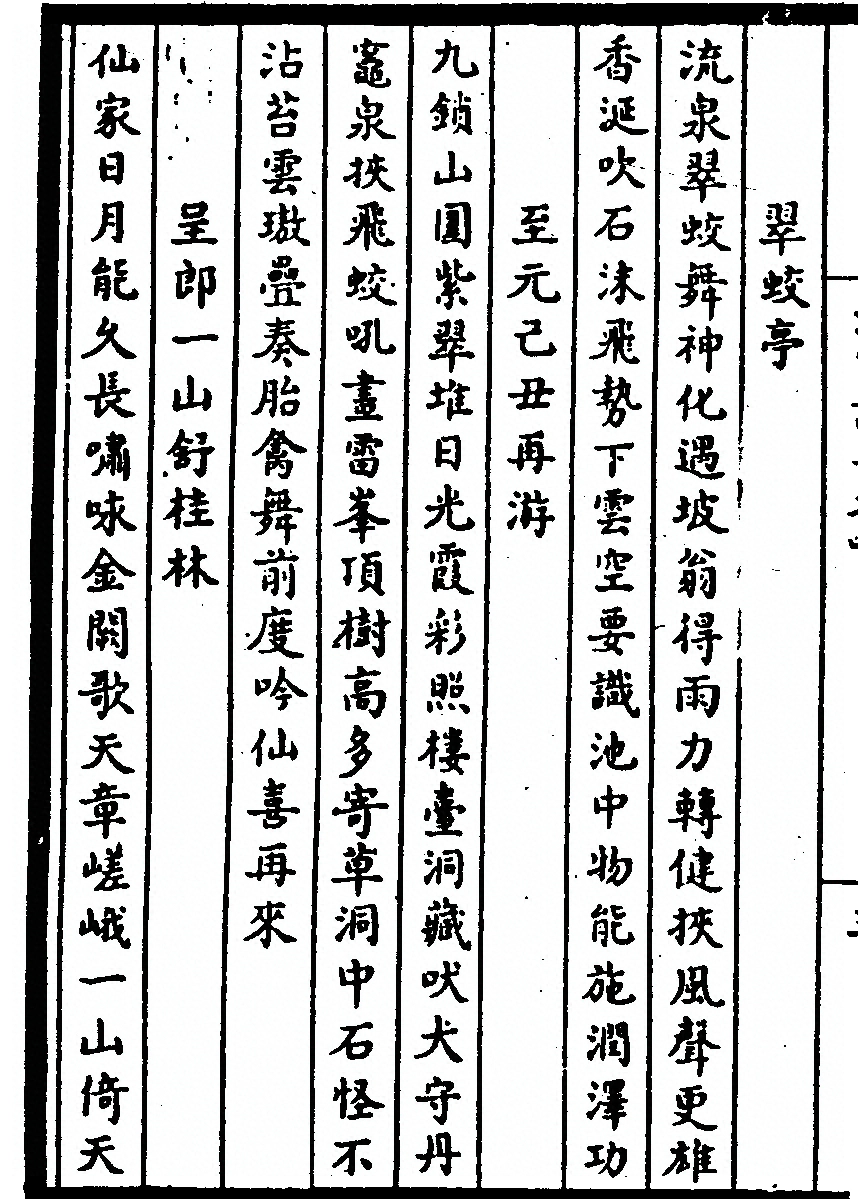 翠蛟亭
流泉翠蛟舞神化遇坡翁得雨力轉健挾風聲更雄
香涎吹石沫飛勢下雲空要識池中物能施潤澤功
至元己丑再游
九鎖山圍紫翠堆日光霞彩照樓臺洞藏吠犬守丹
竈泉挾飛蛟吼晝雷峯頂樹高多寄草洞中石怪不
沾苔雲璈疊奏胎禽舞前度吟仙喜再來
呈郎一山舒桂林
仙家日月能久長嘯咏金闕歌天章嵯峨一山倚天